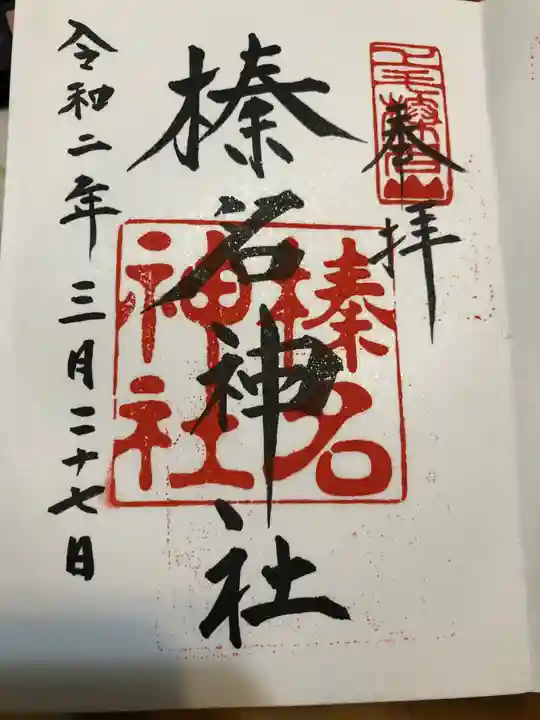 奉拝
榛名神社
榛名神社
令和二年三月二十七日